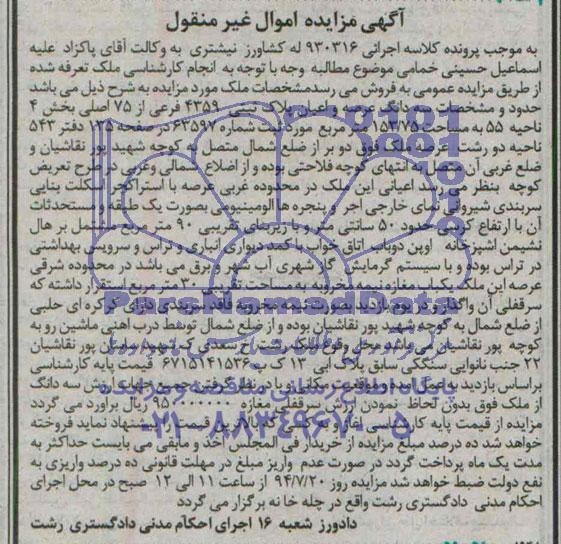 آگهی مزایده اموال غیر منقول
به موجب پرونده کلاسه اجرائی ۹۳۰۳۱۶ له کشاورز نیشتری به وکالت آقای پاکزاد علیه
اسماعیل حسینی خمامی موضوع مطالبه وجه با توجه به انجام کارشناسی ملک تعرفه شده
از طریق مزایده عمومی به فروش می رسد مشخصات ملک مورد مزایده به شرح ذیل می باشد
حدود و مشخصات سه دانگ عرصه و اعیان پلاک ثبتی ۴۳۵۹ فرعی از ۷۵ اصلی بخش ۴
ناحیه ۵۵ به مساحت ۱۵۴/۷۵ متر مربع مورد ثبت شماره ۶۳۵۹۷ در صفحه ۱۲۵ دفتر ۵۴۳
ناحیه دو رشت عرصه ملک فوق دو بر از ضلع شمال متصل به کوچه شهید پور نقاشیان و
ضلع غربی آن متصل به انتهای کوچه فلاحتی بوده و از اضلاع شمالی و غربی در طرح تعریض
کوچه بنظر می رسد اعیانی این ملک در محدوده غربی عرصه با استراکچر اسکلت بنایی
سربندی شیروانی نمای خارجی اجر و پنجره ها الومینیومی بصورت یک طبقه و مستحدثات
آن با ارتفاع کرسی حدود ۵۰ سانتی متر و با زیربنای تقریبی ۹۰ متر مربع مشتمل بر هال
نشیمن اشپزخانه اوپن دوباب اتاق خواب با کمد دیواری انباری و تراس و سرویس بهداشتی
در تراس بوده و با سیستم گرمایش گاز شهری آب شهر و برق می باشد در محدوده شرقی
عرصه این ملک یکباب مغازه نیمه مخروبه به مساحت تقریبی ۳۰ متر مربع استقرار داشته که
سرقفلی آن واگذار و در یوم بازدید بصورت نیمه مخروبه فاقد سربندی دارای کرکره ای حلبی
از ضلع شمال به کوچه شهید پور نقاشیان بوده و از ضلع شمال توسط درب اهنی ماشین رو به
کوچه پور نقاشیان می باشد محل وقوع ملک رشت خ سعدی ک شهید پور نقاشیان
۲۲ جنب نانوایی سنگکی سابق پلاک ابی ۱۳ ک پ ۶۷۱۵۱۴۱۵۳۶ قیمت پایه کارشناسی
براساس بازدید به عمل امده و موقعیت مکانی و با در نظر گرفتن جمیع جهات ارزش سه دانگ
از ملک فوق بدون لحاظ نمودن ارزش سرقفلی مغازه ریال براورد می گردد
مزایده از قیمت پایه کارشناسی اغاز و به کسی که بالاترین قیمت را پیشنهاد نماید فروخته
خواهد شد ده درصد مبلغ مزایده از خریدار فی المجلس اخذ و مابقی می بایست حداکثر به
مدت یک ماه پرداخت گردد در صورت عدم واریز مبلغ در مهلت قانونی ده درصد واریزی به
نفع دولت ضبط خواهد شد مزایده روز ۹۴/۷/۲۰ از ساعت ۱۱ الی ۱۲ صبح در محل اجرای
احکام مدنی دادگستری رشت واقع در چله خانه برگزار می گردد
دادورز شعبه ۱۶ اجرای احکام مدنی دادگستری رشت
ParsNamadData
پایگاه اطلاع رسانی مناقصه و مزایده
۰۲۱-۸۸۳۴۹۶۷۰-۵